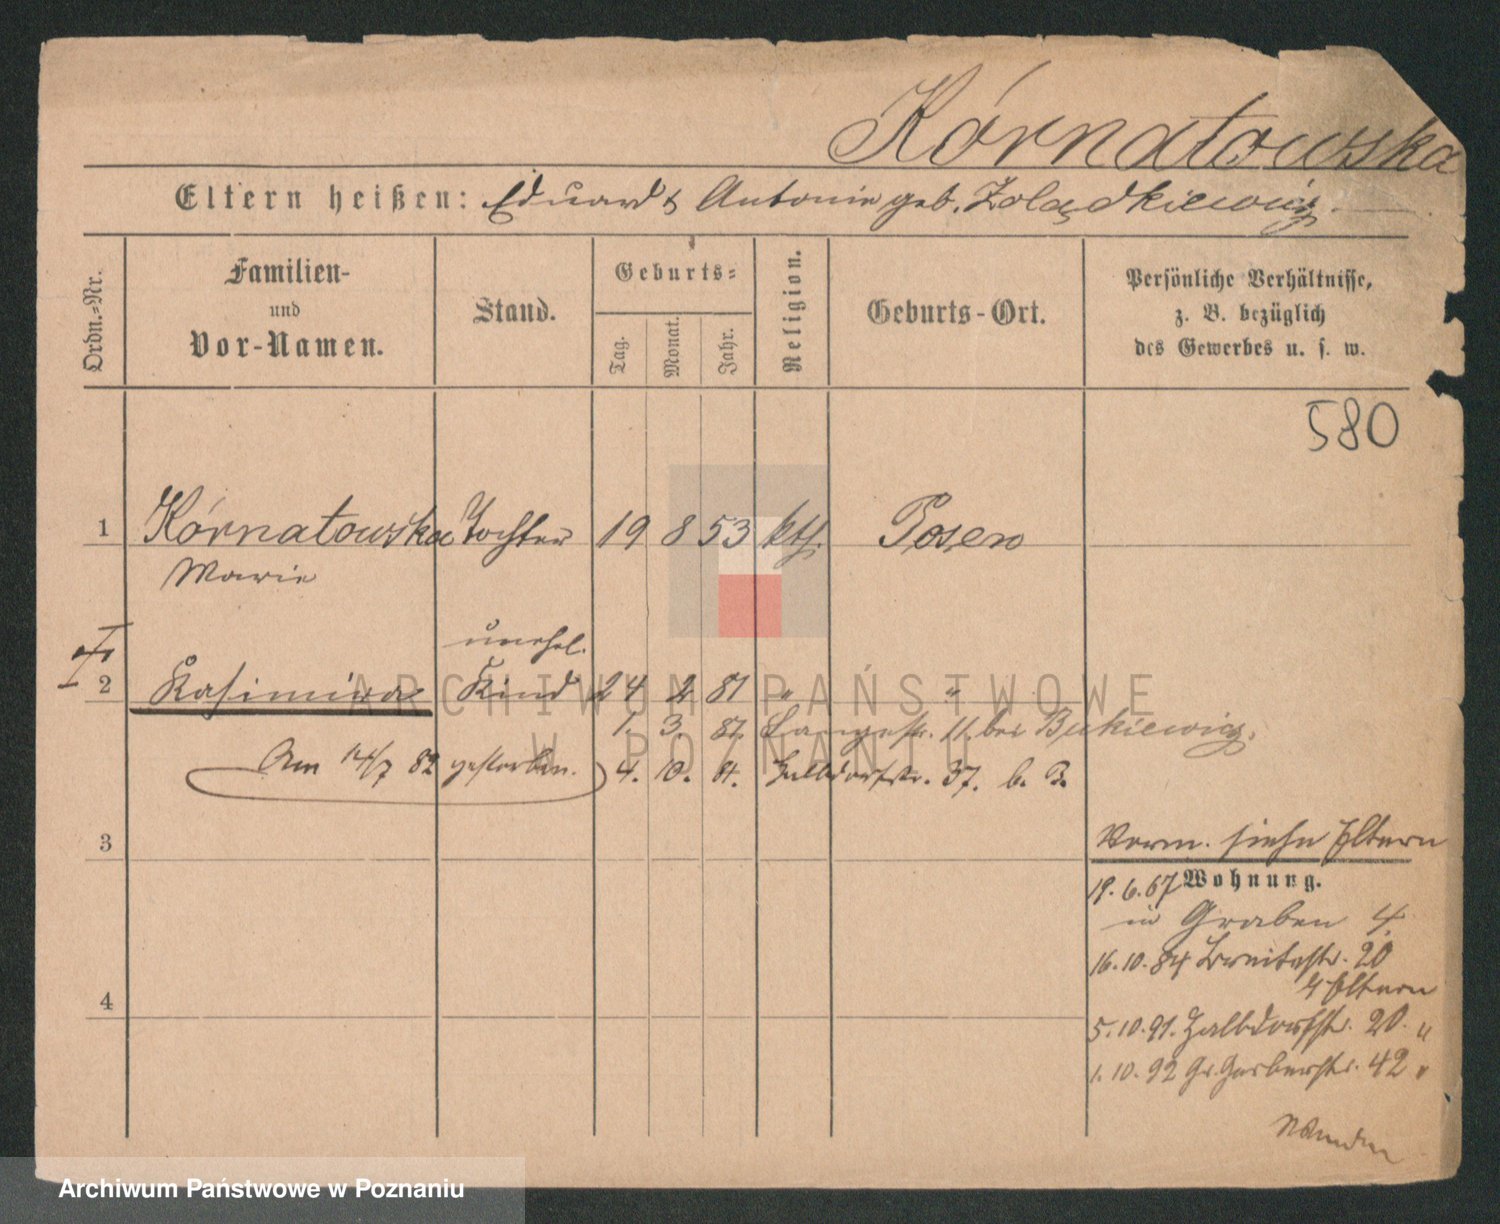 Kórnatowska
Eltern heißen: Eduard & Antonie geb. Zolądkiewicz.
Ordn.-Nr.
Familien-
und
Vor-Namen.
Stand.
Geburts-
Tag.
Monat.
Jahr.
Religion.
Geburts-Ort.
Persönliche Verhältnisse,
z. B. bezüglich
des Gewerbes u. s. w.
580
1 Kórnatowska Tochter 19 8 53 kth. Posen
Marie
unehel.
2 Kasimira Kind 24 2 81 " "
1. 3. 87. Langestr. 11. bei Bukiewicz.
Am 14/7 82 gestorben. 4. 10. 81. Halbdorfstr. 37. b. B.
3
Vorm. siehe Eltern
Wohnung.
19. 6. 67
in Graben 4.
16. 10. 84 20
Eltern
4
5. 10. 91. Halbdorfstr. 20. "
1. 10. 92 Gr. Gerberstr. 42 "
ARCHIWUM PAŃSTWOWE
W POZNANIU
Archiwum Państwowe w Poznaniu